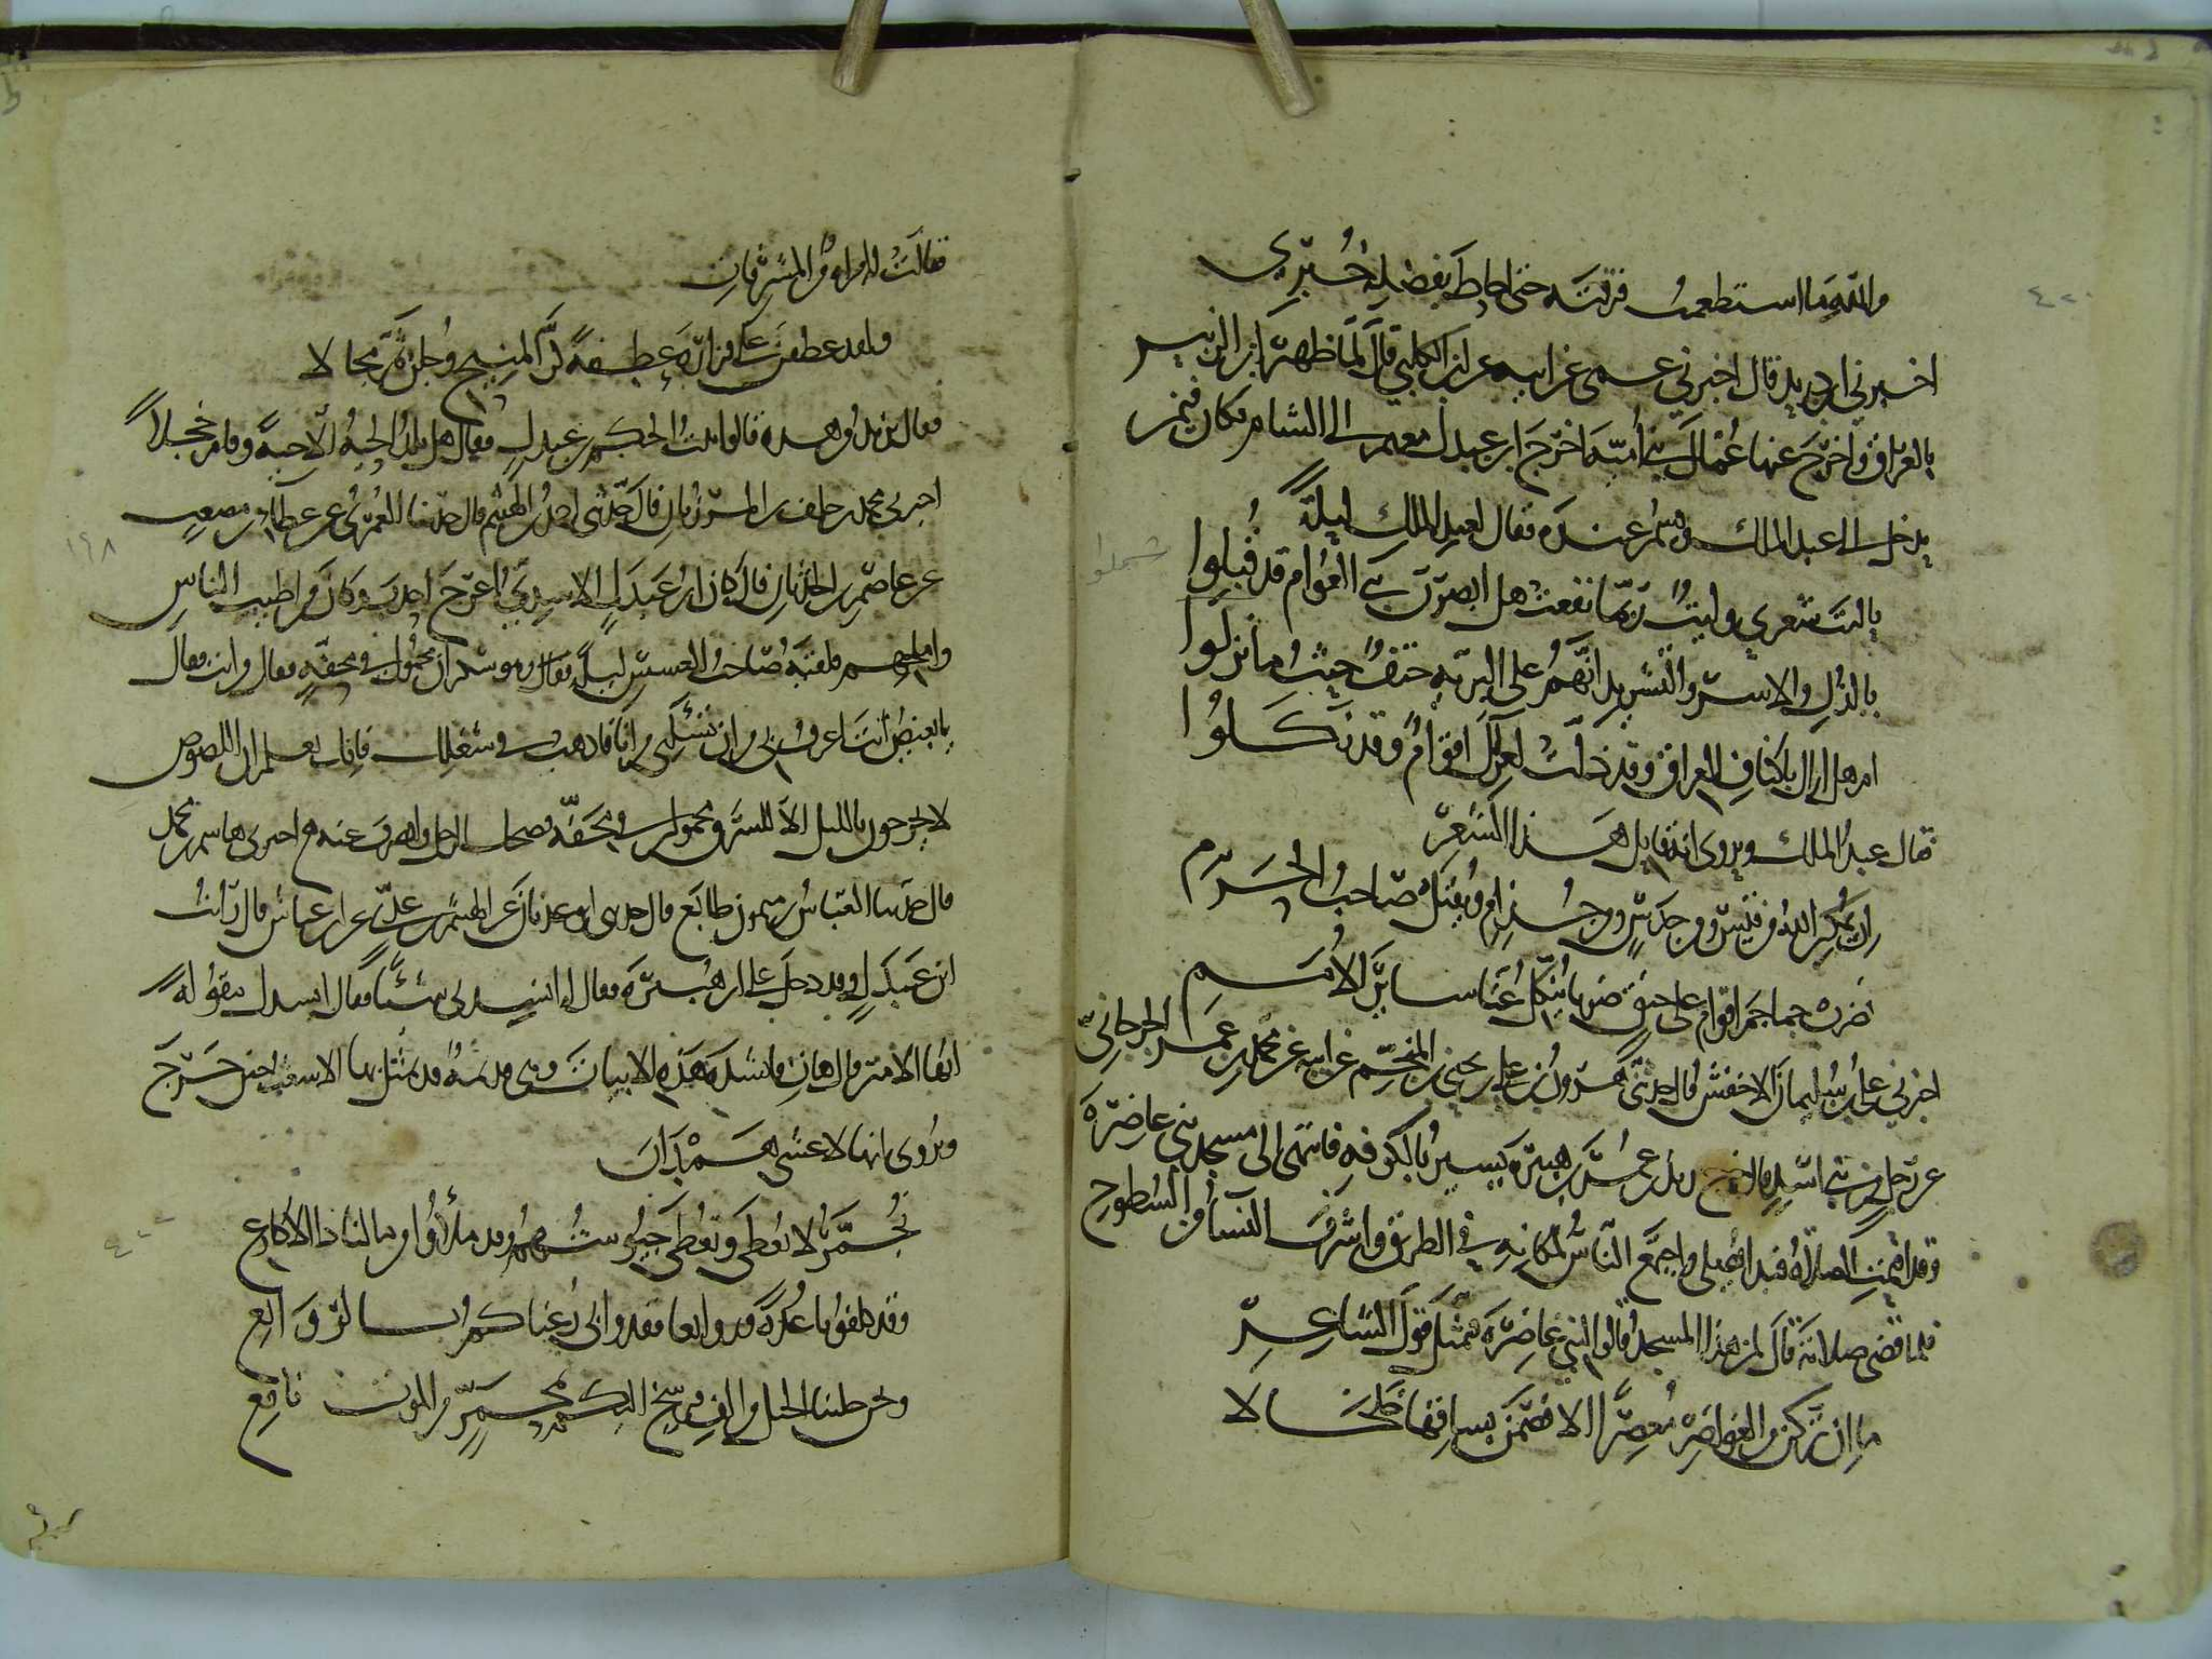 والله ما استطعمت فرقته حتى احاط بفضله خبري
اخبرني ابن دريد قال اخبرني عمي عن ابيه عن ابن الكلبي قال لما ظهر ابن الزبير
بالعراق واخرج عنها عمال بني امية اخرج ابن عبدل معهم الى الشام وكان فيمن
يدخل الى عبد الملك ويسمر عنده فقال لعبد الملك ليلة
يا ليت شعري وليت ربما نفعت هل ابصرن بني العوام قد قبلوا
شملوا
بالذل والاسر والتشريد انهم على البرية حتف حيث ما نزلوا
ام هل اراك باكناف العراق وقد ذلت لعزك اقوام وقد نكلوا
قال عبد الملك ويروى انه قايل هذا الشعر
ان يمكن الله من قيس ومن جدس ومن جذام ويقتل صاحب الحرم
نضرب جماجم اقوام على حنق ضربا ينكل عنا ساير الامم
اخبرني علي بن سليمان الاخفش قال حدثني هرون بن علي بن يحيى المنجم عن ابيه عن محمد بن عمر الجرجاني
عن رجل من بني اسد قال خرج يزيد بن عمر بن هبيرة يسير بالكوفه فانتهى الى مسجد بني غاضرة
وقد اقيمت الصلاة فنزل فصلى واجتمع الناس لمكانه في الطريق واشرف النساء من السطوح
فلما قضى صلاته قال لمن هذا المسجد قالوا لبني غاضرة فتمثل قول الشاعر
ما ان تركن من الغواضر معصرا الا فصمن بساقها خلخالا
فقالت له امراة من المشرفات
ولقد عطفن على فزارة عطفة كر المنيح وجلن ثم مجالا
فقال يزيد من هذه قالوا بنت الحكم بن عبدل فقال هل تلد الحية الا حية وقام خجلا
اخبرني محمد بن خلف بن المرزبان قال حدثني احمد بن الهيثم قال حدثنا العمري عن عطاء بن مصعب
١٩٨
عن عاصم بن الحدثان قال كان ابن عبدل الاسدي اعرج احدب وكان من اطيب الناس
واملحهم فلقيه صاحب العسس ليلة وهو سكران محمول في محفة فقال من انت فقال
يا بغيض انت اعرف بي من ان تسئلني من انا فاذهب في شغلك فانك تعلم ان اللصوص
لا يخرجون بالليل الا للسرق محمولين في محفة فضحك الرجل وانصرف عنه اخبرني هاشم بن محمد
قال حدثنا العباس بن ميمون طايع قال حدثني ابو عدنان عن الهيثم بن عدي عن ابن عياش قال رايت
ابن عبدل وقد دخل على ابن هبيرة فقال له انشدني شيئا فقال
ايها الامير قال هات فانشده هذه الابيات وهي قديمة وقد تمثل بها ابن الاشعث حين خرج
ويروى انها لاعشى همدان
نجمر لا نعطى وتعطى جيوشهم وقد ملأوا من مالنا ذا الاكارع
وقد كلفونا عدة وروايعا فقد وابي رعناكم بالروايع
ونحن جلبنا الخيل من الف فرسخ اليكم بمجمر من الموت ناقع